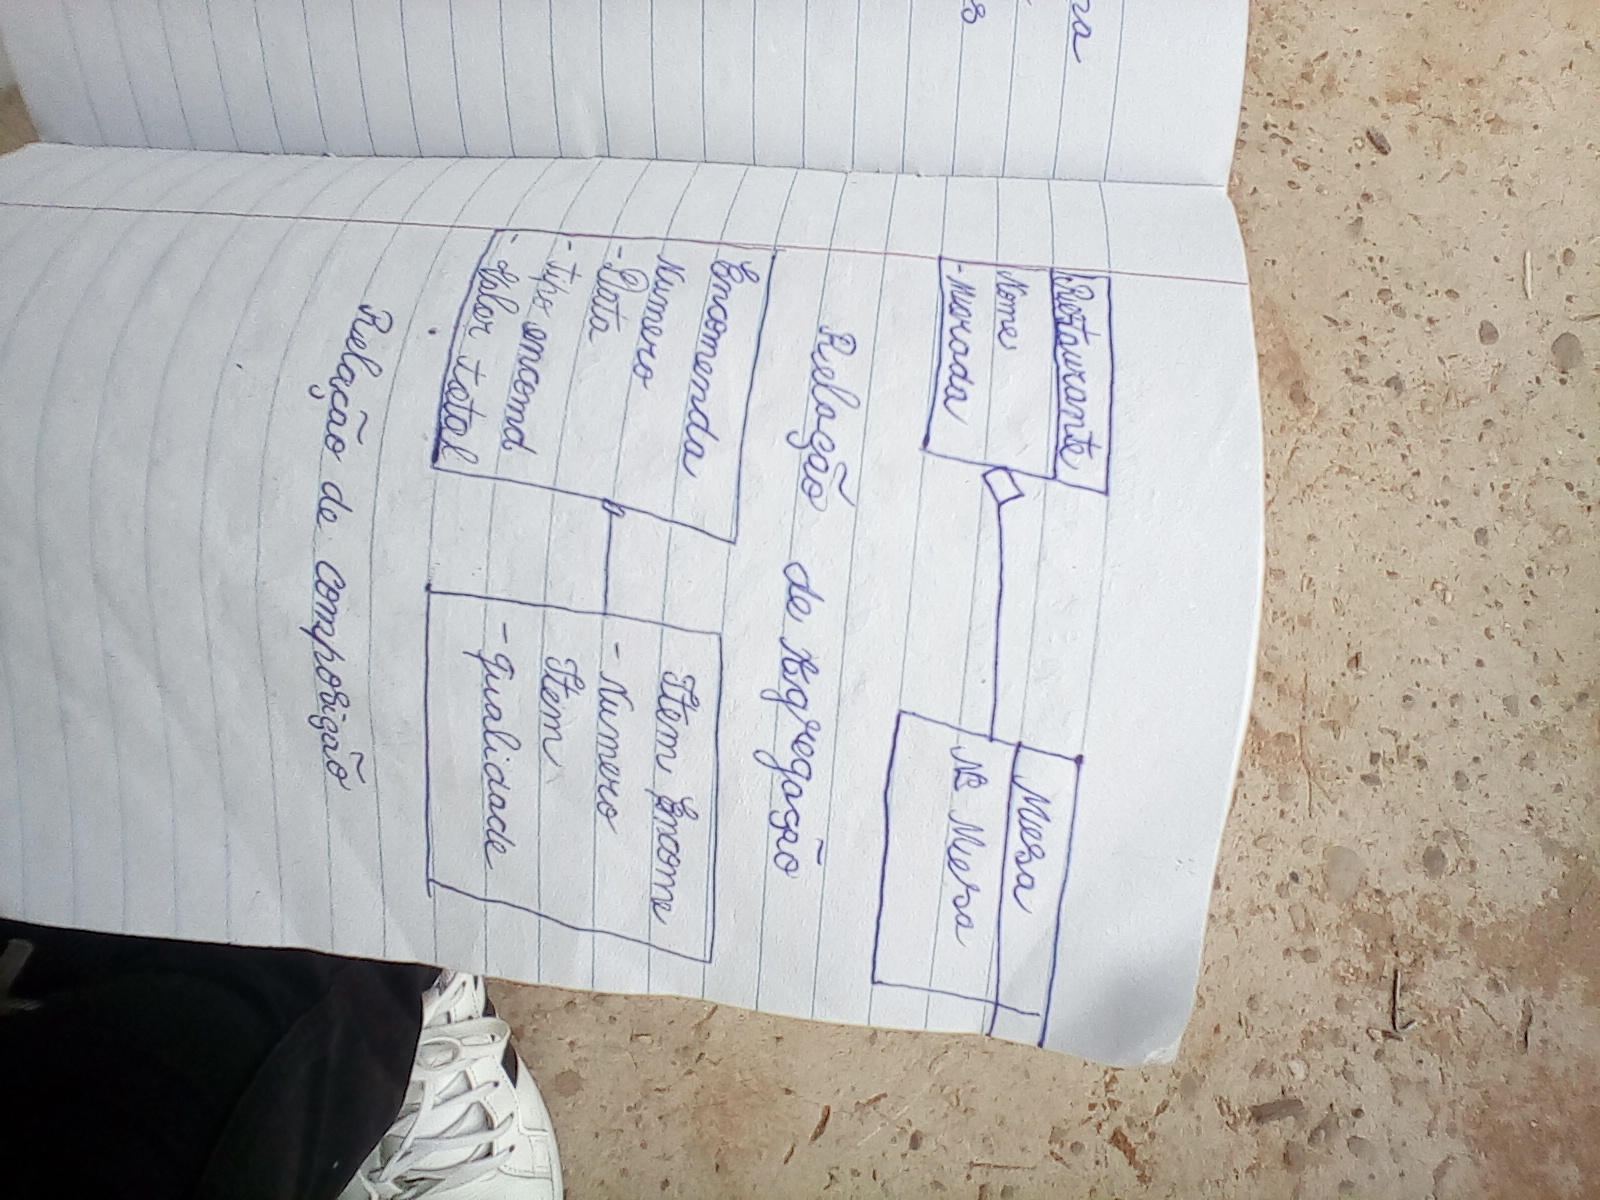 Restaurante
Nome
- Morada
Mesa
Nº Mesa
Relação de Agregação
Encomenda
Numero
- Data
- Tipo encomd
- Valor total
Item Encome
- Numero
Item
- qualidade
Relação de composição